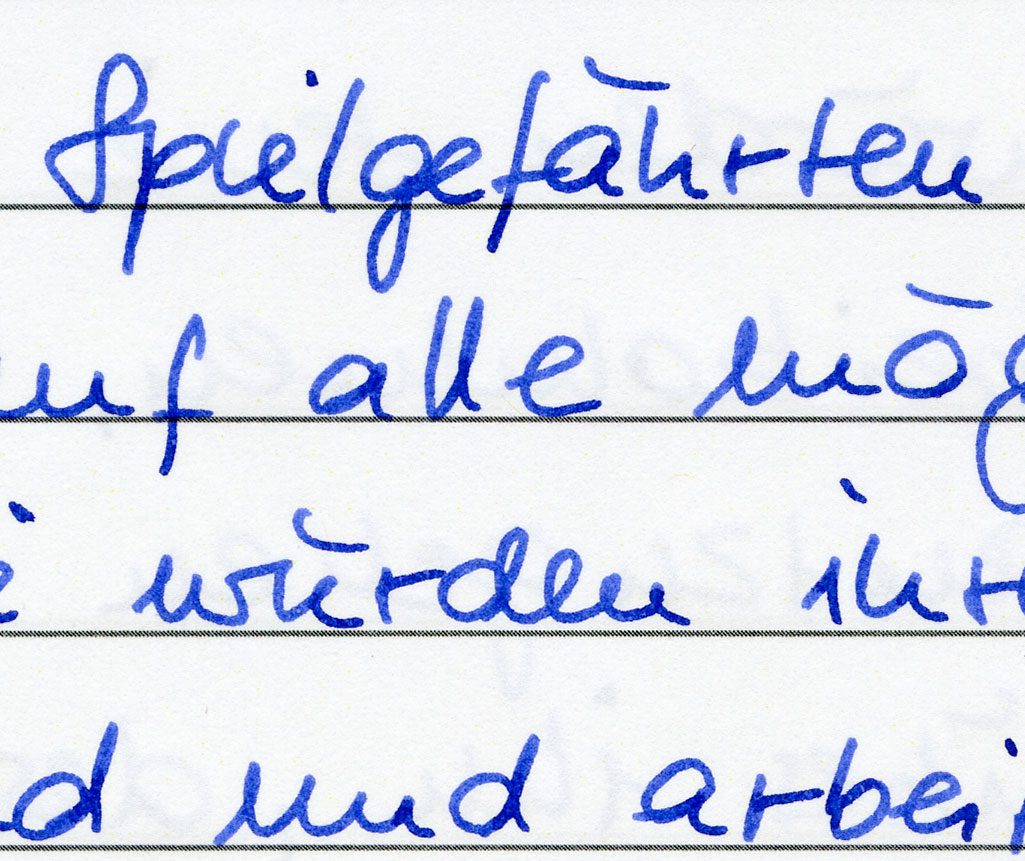 Spielgefährten
auf alle mög
würden ihre
d und arbei